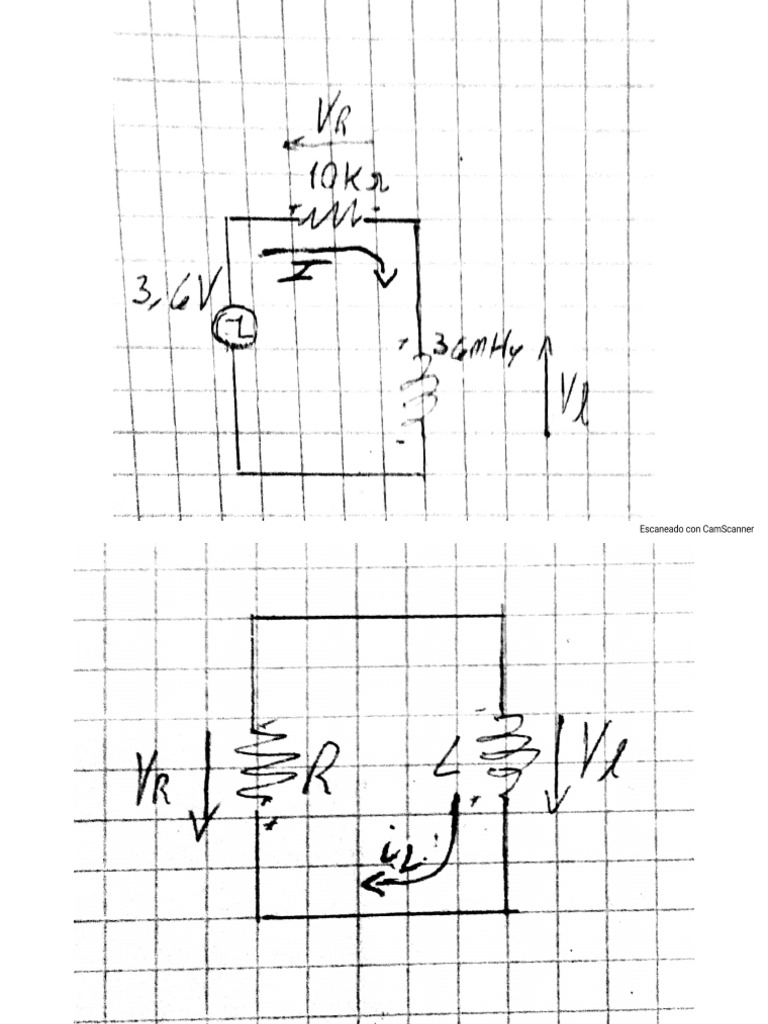 VR
10KΩ
+ -
I
3,6V
+ 36mHy
Vl
-
Escaneado con CamScanner
- -
VR R L Vl
+ +
iL